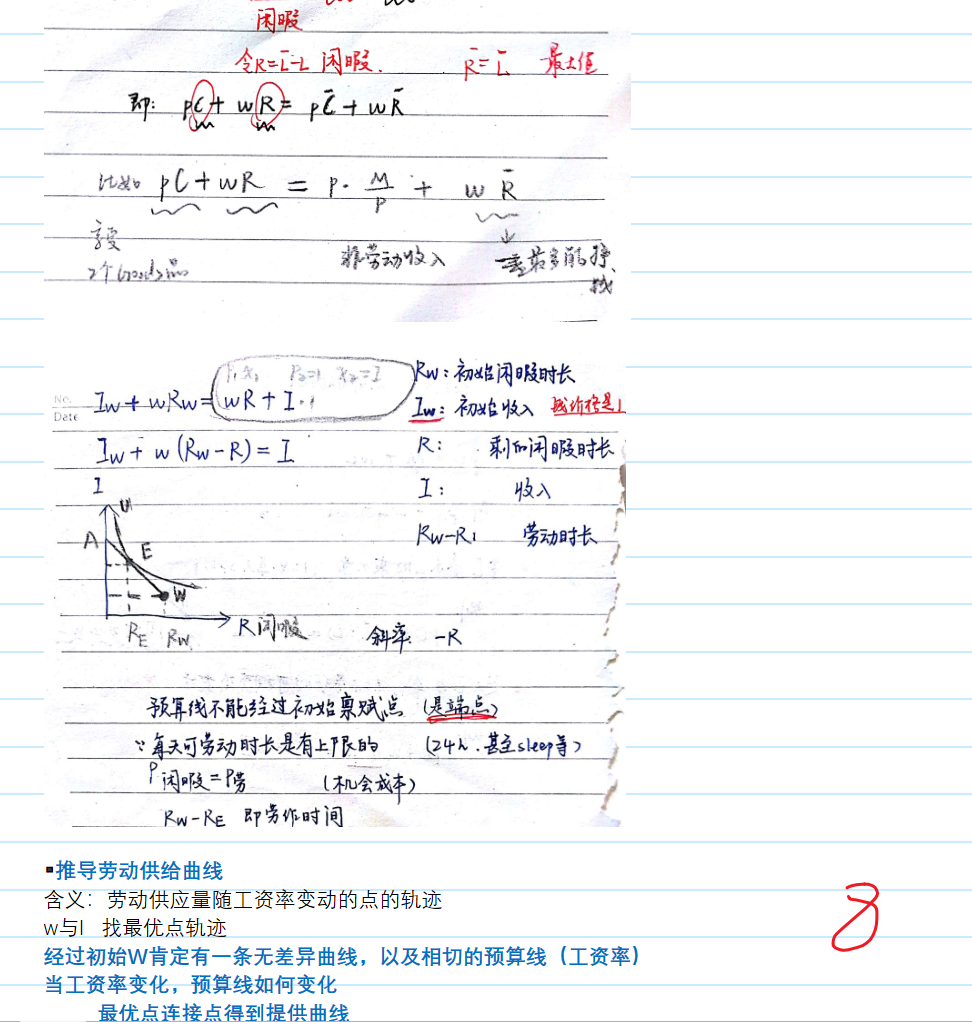 闲暇
令R=L̄-L 闲暇. R̄=L̄ 最大值
即: pC+wR=pC̄+wR̄
比如 pC+wR = p·M/p + wR̄
享受
2个Goods品 非劳动收入 最多能挣
钱
P₁x₁ P₂=1 x₂=I
Rw:初始闲暇时长
No.
Date
Iw+wRw=wR+I·1
Iw:初始收入 钱价格是1
Iw+w(Rw-R)=I
R: 剩余闲暇时长
I
I: 收入
U
A
E
Rw-R: 劳动时长
W
RE Rw R闲暇
斜率 -R
预算线不能经过初始禀赋点 (是端点)
∵每天可劳动时长是有上限的 (24h.甚至sleep等)
P闲暇=P劳 (机会成本)
Rw-RE 即劳作时间
▪推导劳动供给曲线
含义:劳动供应量随工资率变动的点的轨迹
w与l 找最优点轨迹
经过初始W肯定有一条无差异曲线，以及相切的预算线（工资率）
当工资率变化，预算线如何变化
最优点连接点得到提供曲线
8